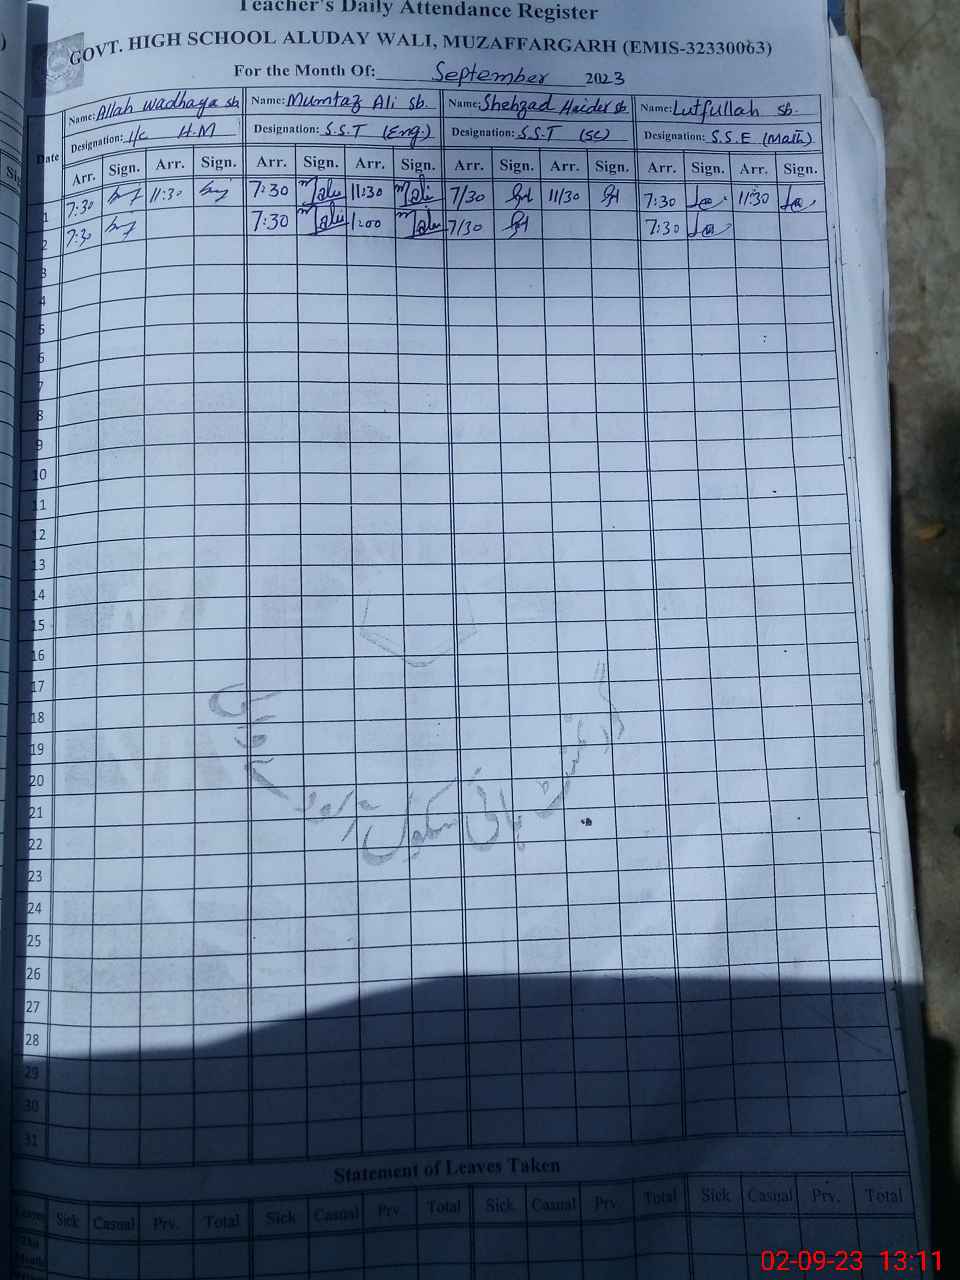 Teacher's Daily Attendance Register
GOVT. HIGH SCHOOL ALUDAY WALI, MUZAFFARGARH (EMIS-32330063)
For the Month Of: September 2023
Date Name: Allah Wadhaya sb Name: Mumtaz Ali sb. Name: Shehzad Haider sb Name: Lutfullah sb.
Designation: I/c H.M Designation: S.S.T (Eng.) Designation: S.S.T (SC) Designation: S.S.E (Math)
Arr. Sign. Arr. Sign. Arr. Sign. Arr. Sign. Arr. Sign. Arr. Sign. Arr. Sign. Arr. Sign.
1 7:30 11:30 7:30 11:30 7/30 11/30 7:30 11:30
2 7:30 7:30 1:00 7/30 7:30
3
4
5
6
7
8
9
10
11
12
13
14
15
16
17
18
19
20
21
22
23
24
25
26
27
28
29
30
31
Statement of Leaves Taken
Leaves Sick Casual Prv. Total Sick Casual Prv. Total Sick Casual Prv. Total Sick Casual Prv. Total
Month
02-09-23 13:11